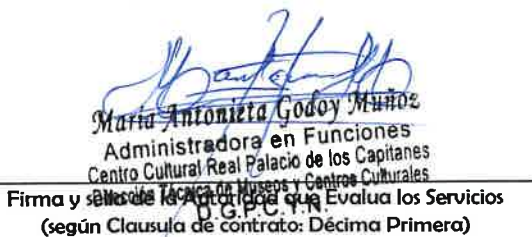 María Antonieta Godoy Muñoz
Administradora en Funciones
Centro Cultural Real Palacio de los Capitanes
Dirección Técnica de Museos y Centros Culturales
D.G.P.C.Y.N.
Firma y sello de la Autoridad que Evalua los Servicios
(según Clausula de contrato: Décima Primera)